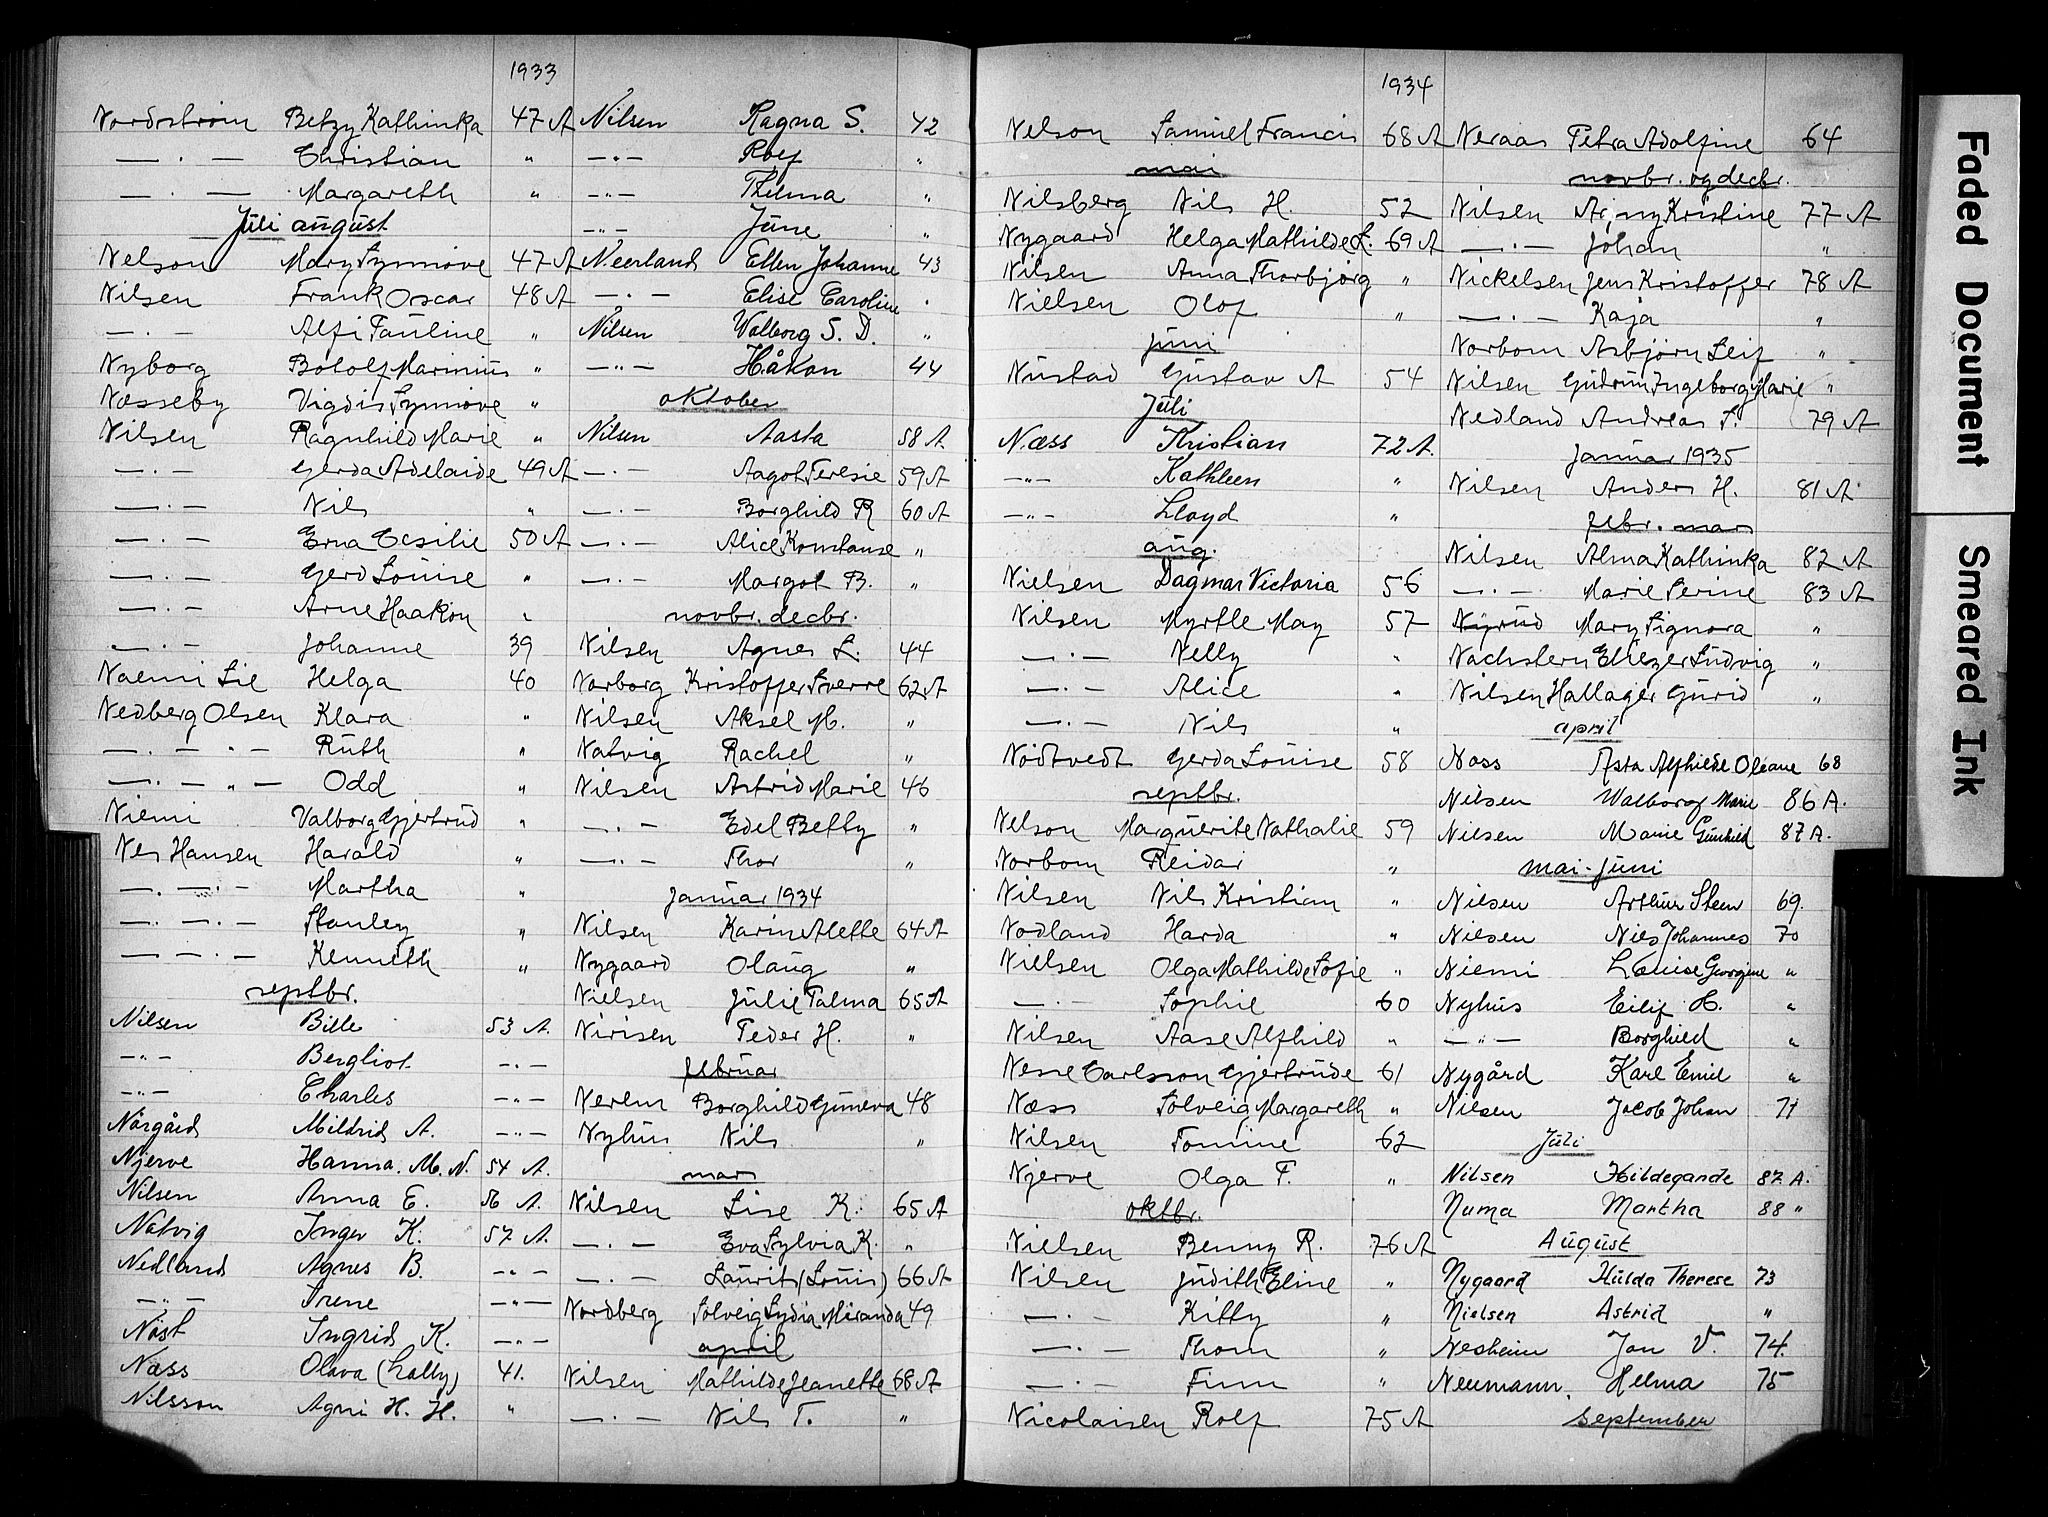 1933
Nordström Betzy Kathinka 47 A
— . — Christian "
— . — Margareth "
Juli august
Nelson Mary Synnøve 47 A
Nilsen Frank Oscar 48 A
— . — Alfi Pauline "
Nyborg Botolf Marinius "
Næsseby Vigdis Synnøve "
Nilsen Ragnhild Marie "
— . — Gerda Adelaide 49 A
— . — Nils "
— . — Erna Cesilie 50 A
— . — Gerd Louise "
— . — Arne Haakon "
— . — Johanne 39
Naemi Lie Helga 40
Nedberg Olsen Klara "
— . — " — Ruth "
— . — " — Odd "
Niemi Valborg Gjertrud "
Nes Hansen Harald "
— . — . — Martha "
— . — . — Stanley "
— . — . — Kenneth "
septbr.
Nilsen Bille 53 A.
— " — Bergliot — " —
— " — Charles — " —
Nørgård Mildrid A. — " —
Njerve Hanna. M. N. 54 A.
Nilsen Anna E. 56 A.
Natvig Inger K. 57 A.
Nedland Agnes B. — " —
— " — Irene — " —
Nöst Ingrid K. — " —
Næss Olava (Lally) 41.
Nilsson Agni H. H. "
Nilsen Ragna S. 42
— " — Rolf "
— " — Thelma "
— " — June "
Neerland Ellen Johanne 43
— . — Elise Caroline "
Nilsen Walborg S. D. "
— " — Håkon 44
oktober
Nilsen Aasta 58 A.
— . — Aagot Teresie 59 A
— . — Borghild R 60 A
— . — Alice Konstanse "
— . — Margot B. "
novbr. decbr.
Nilsen Agnes L. 44
Norborg Kristoffer Sverre 62 A
Nilsen Aksel M. "
Natvig Rachel "
Nilsen Astrid Marie 46
— . — Edel Betty "
— " — Thor "
Januar 1934
Nilsen Karin Alette 64 A
Nygaard Olaug "
Nielsen Julie Palma 65 A
Nirisen Peder H. "
februar
Nerem Borghild Guneva 48
Nyhus Nils "
mars
Nilsen Lise K. 65 A
— . — Eva Sylvia K. "
— . — Laurits (Louis) 66 A
Nordberg Solveig Lydia Miranda 49
april
Nilsen Mathilde Jeanette 68 A
— . — Nils T. "
1934
Nelson Samuel Francis 68 A
mai
Nilsberg Nils H. 52
Nygaard Helga Mathilde L. 69 A
Nilsen Anna Thorbjörg "
Nielsen Olof "
juni
Nustad Gustav A 54
Juli
Næss Kristian 72 A.
— " — Kathleen "
— " — Lloyd "
aug.
Nielsen Dagmar Victoria 56
Nilsen Myrtle May 57
— . — Nelly "
— . — Alice "
— . — Nils "
Nödtvedt Gerda Louise 58
septbr.
Nelson Marguerite Nathalie 59
Norbom Reidar "
Nilsen Nils Kristian "
Nodland Harda "
Nielsen Olga Mathilde Sofie "
— . — Sophie 60
Nilsen Aase Alfhild "
Nesse Carlsson Gjertrude 61
Næss Solveig Margareth "
Nilsen Tomine 62
Njerve Olga F. "
oktbr.
Nielsen Benny R. 76 A
Nilsen Judith Eline "
— . — Kitty "
— . — Thom "
— . — Finn "
Nicolaisen Rolf 75 A
Neraas Petra Adolfine 64
novbr. og decbr.
Nilsen Agny Kristine 77 A
— . — Johan "
Nickelsen Jens Kristoffer 78 A
— . — Kaja "
Norbom Asbjörn Leif "
Nilsen Gudrun Ingeborg Marie "
Nedland Andreas S. 79 A
Januar 1935
Nilsen Anders H. 81 A
febr. mars
Nilsen Alma Kathinka 82 A
— . — Marie Perine 83 A
Nyrud Mary Signora "
Nachstern Eliezer Ludvig "
Nilsen Hallager Gurid "
april
Noss Asta Alfhilde Oleane 68
Nilsen Walborg Marie 86 A.
Nilsen Marie Gunhild 87 A.
mai - juni
Nilsen Arthur Steen 69.
Nilsen Nils Johannes 70
Niemi Louise Georgine "
Nyhus Eilif H. "
— " — Borghild "
Nygård Karl Emil "
Nilsen Jacob Johan 71
Juli
Nilsen Hildegarde 87. A.
Numa Martha 88 "
August
Nygaard Hulda Therese 73
Nielsen Astrid "
Nesheim Jon V. 74.
Neumann. Helma 75
September
Faded Document
Smeared Ink